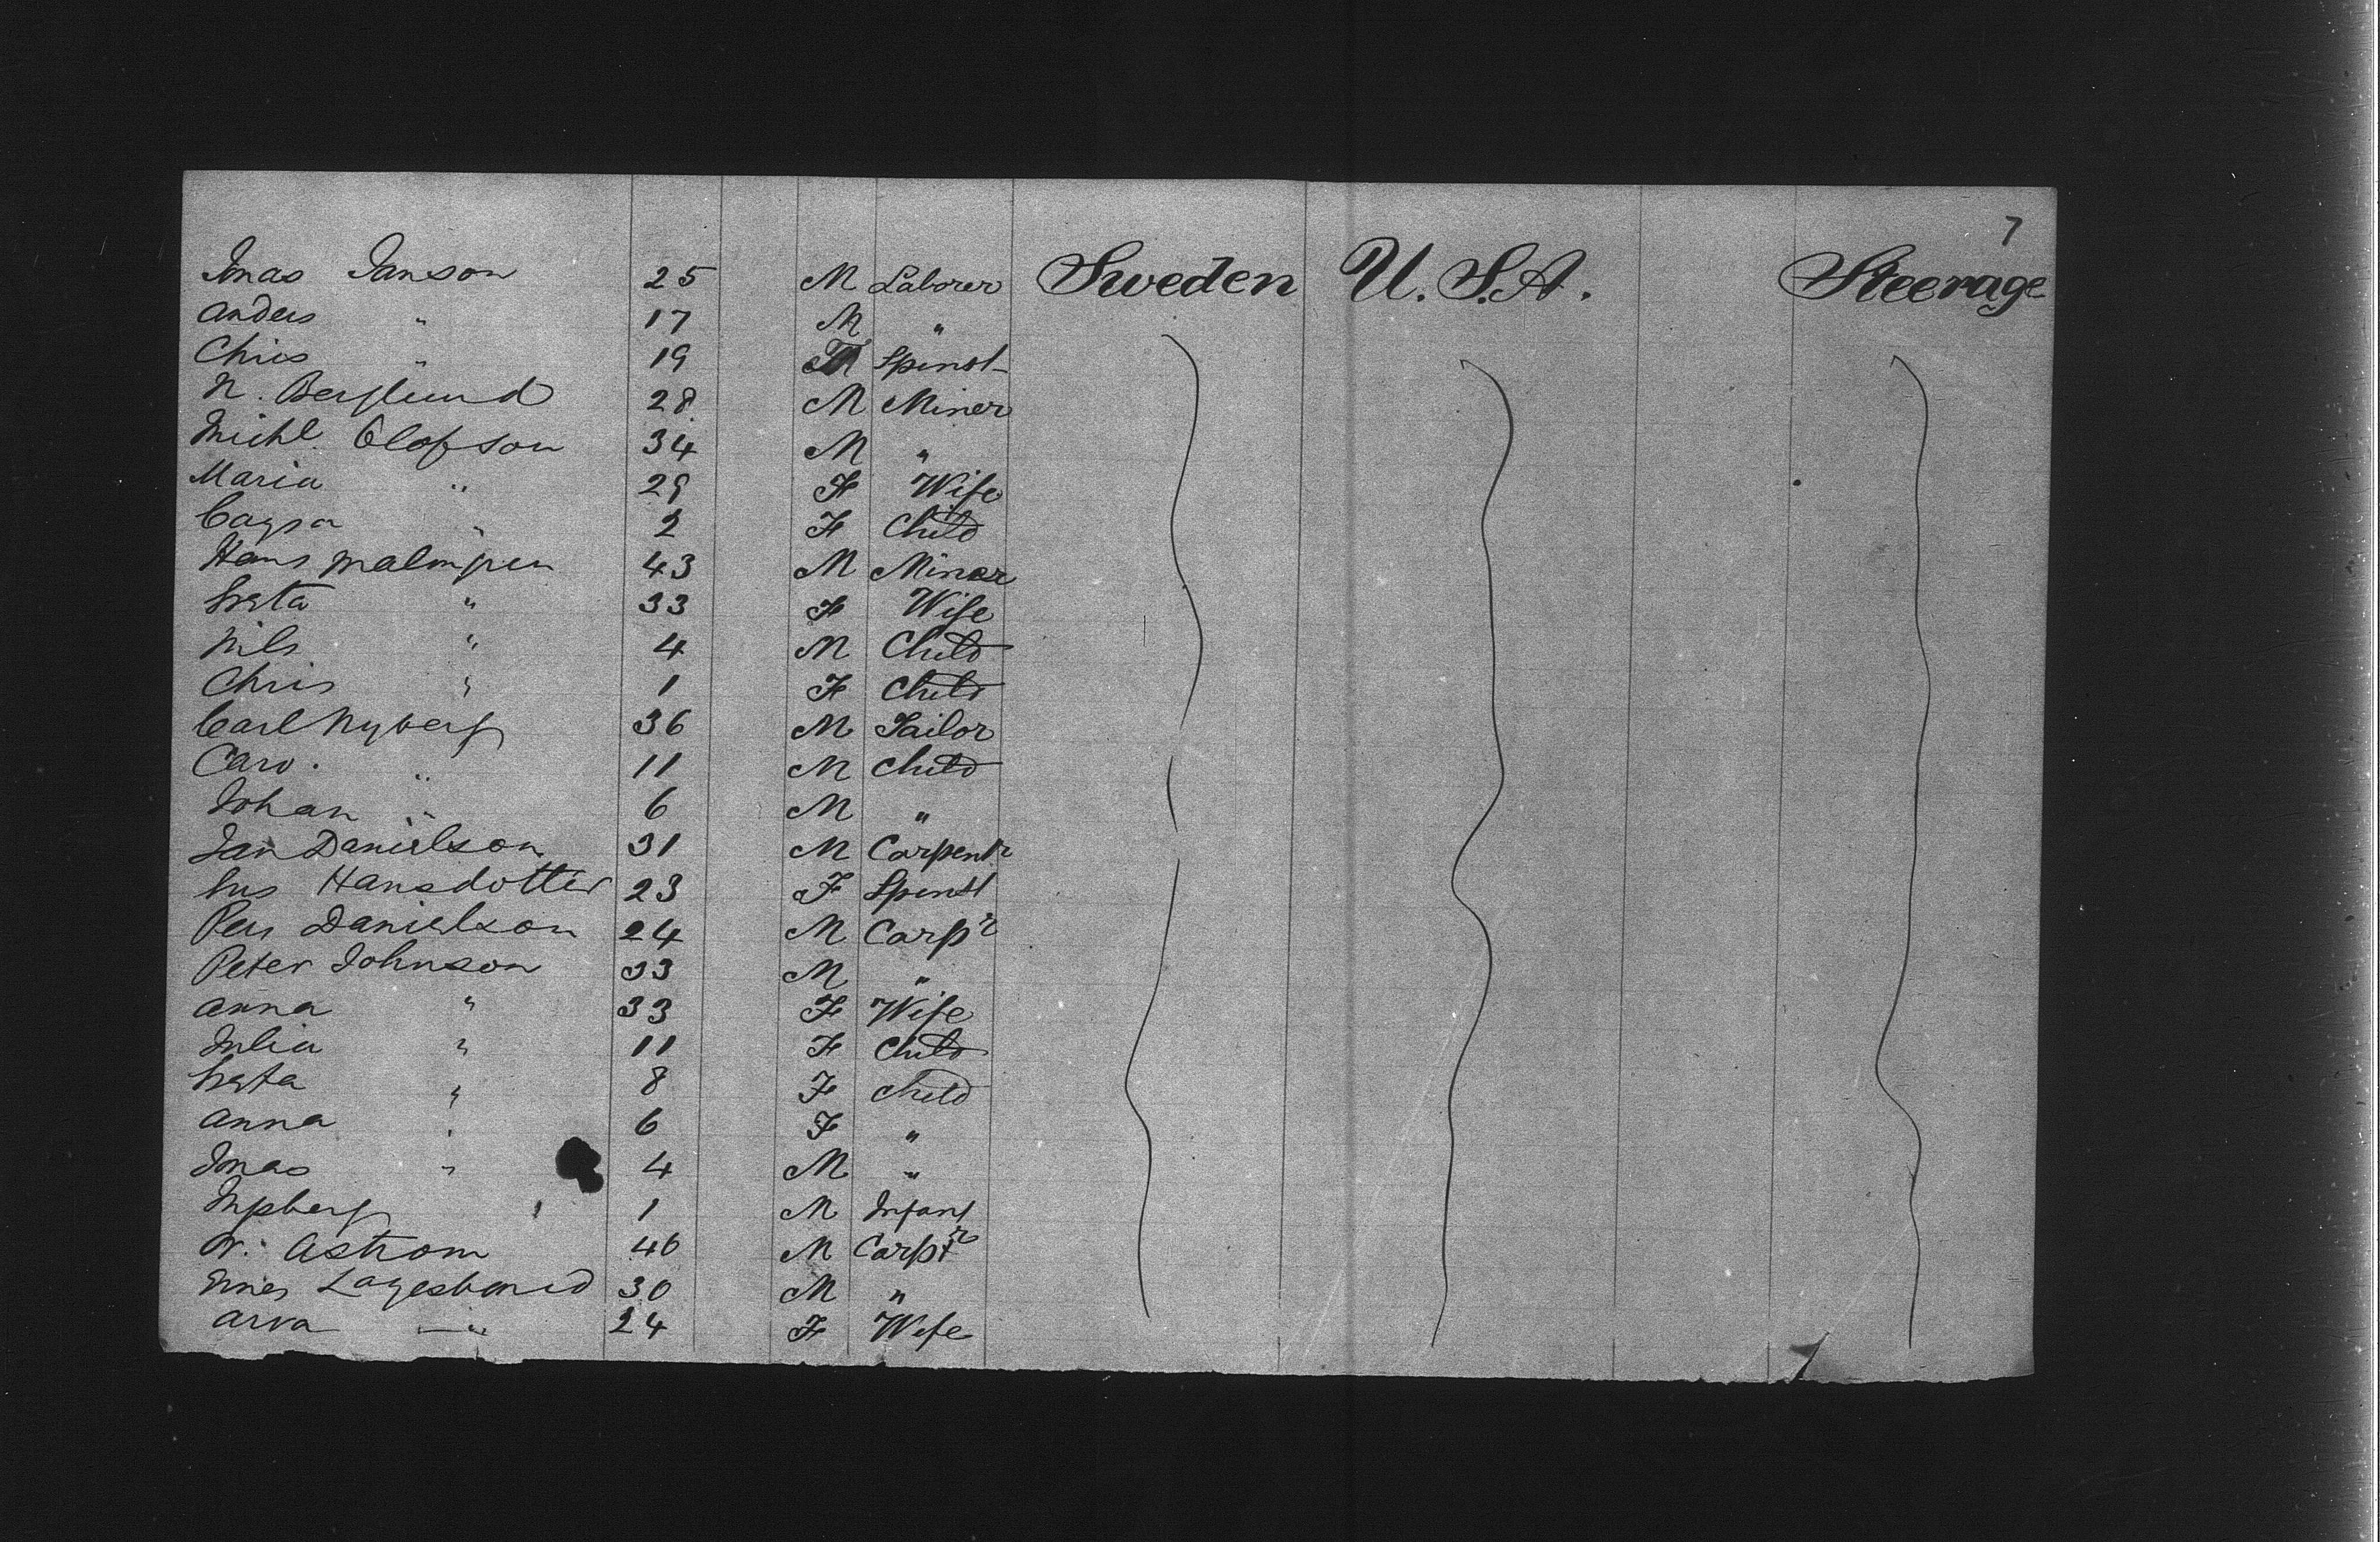 7
Jonas Janson 25 M Laborer Sweden U.S.A. Steerage
Anders " 17 M "
Chris " 19 F Spinst
N. Berglund 28 M Miner
Michl. Olofson 34 M "
Maria " 29 F Wife
Caysa " 2 F Child
Hans Malmgren 43 M Miner
Greta " 33 F Wife
Nils " 4 M Child
Chris " 1 F Child
Carl Nyberg 36 M Tailor
Caro. " 11 M Child
Johan " 6 M "
Jan Danielson 31 M Carpentr
Gus Hansdotter 23 F Spinst
Per Danielson 24 M Carpr
Peter Johnson 33 M "
Anna " 33 F Wife
Julia " 11 F Child
Greta " 8 F Child
Anna " 6 F "
Jonas " 4 M "
Ingberg 1 M Infant
Astrom 46 M Carptr
30 M "
Arva " 24 F Wife